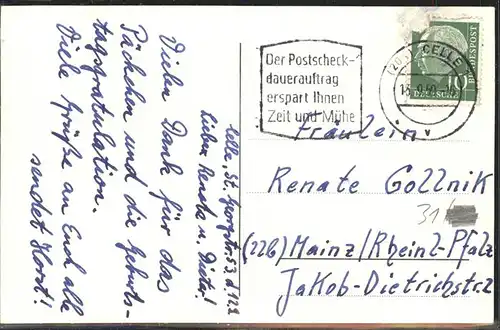 Celle, St. Georgstr. 53, d
Lieber Renate u. Dieter!
Vielen Dank für das
Päckchen und die Geburts-
tagsgratulation.
Viele Grüße an Euch alle
sendet Horst!
Der Postscheck-
dauerauftrag
erspart Ihnen
Zeit und Mühe
(20a) CELLE
DEUTSCHE
BUNDESPOST
10
Fräulein
Renate Gollnik
31
(22b) Mainz/Rheinl-Pfalz
Jakob-Dietrichstr